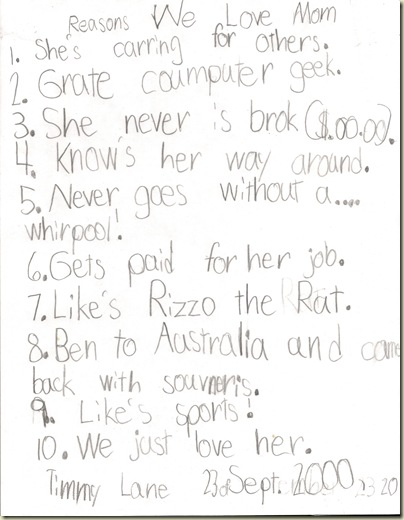 Reasons We Love Mom
1. She's carring for others.
2. Grate coumputer geek.
3. She never is brok ($1.00.00).
4. Know's her way around.
5. Never goes without a....
whirpool!
6. Gets paid for her job.
7. Like's Rizzo the Rat.
8. Ben to Australia and came
back with souvneris.
9. Like's sports!
10. We just love her.
Timmy Lane 23 Sept. 2000